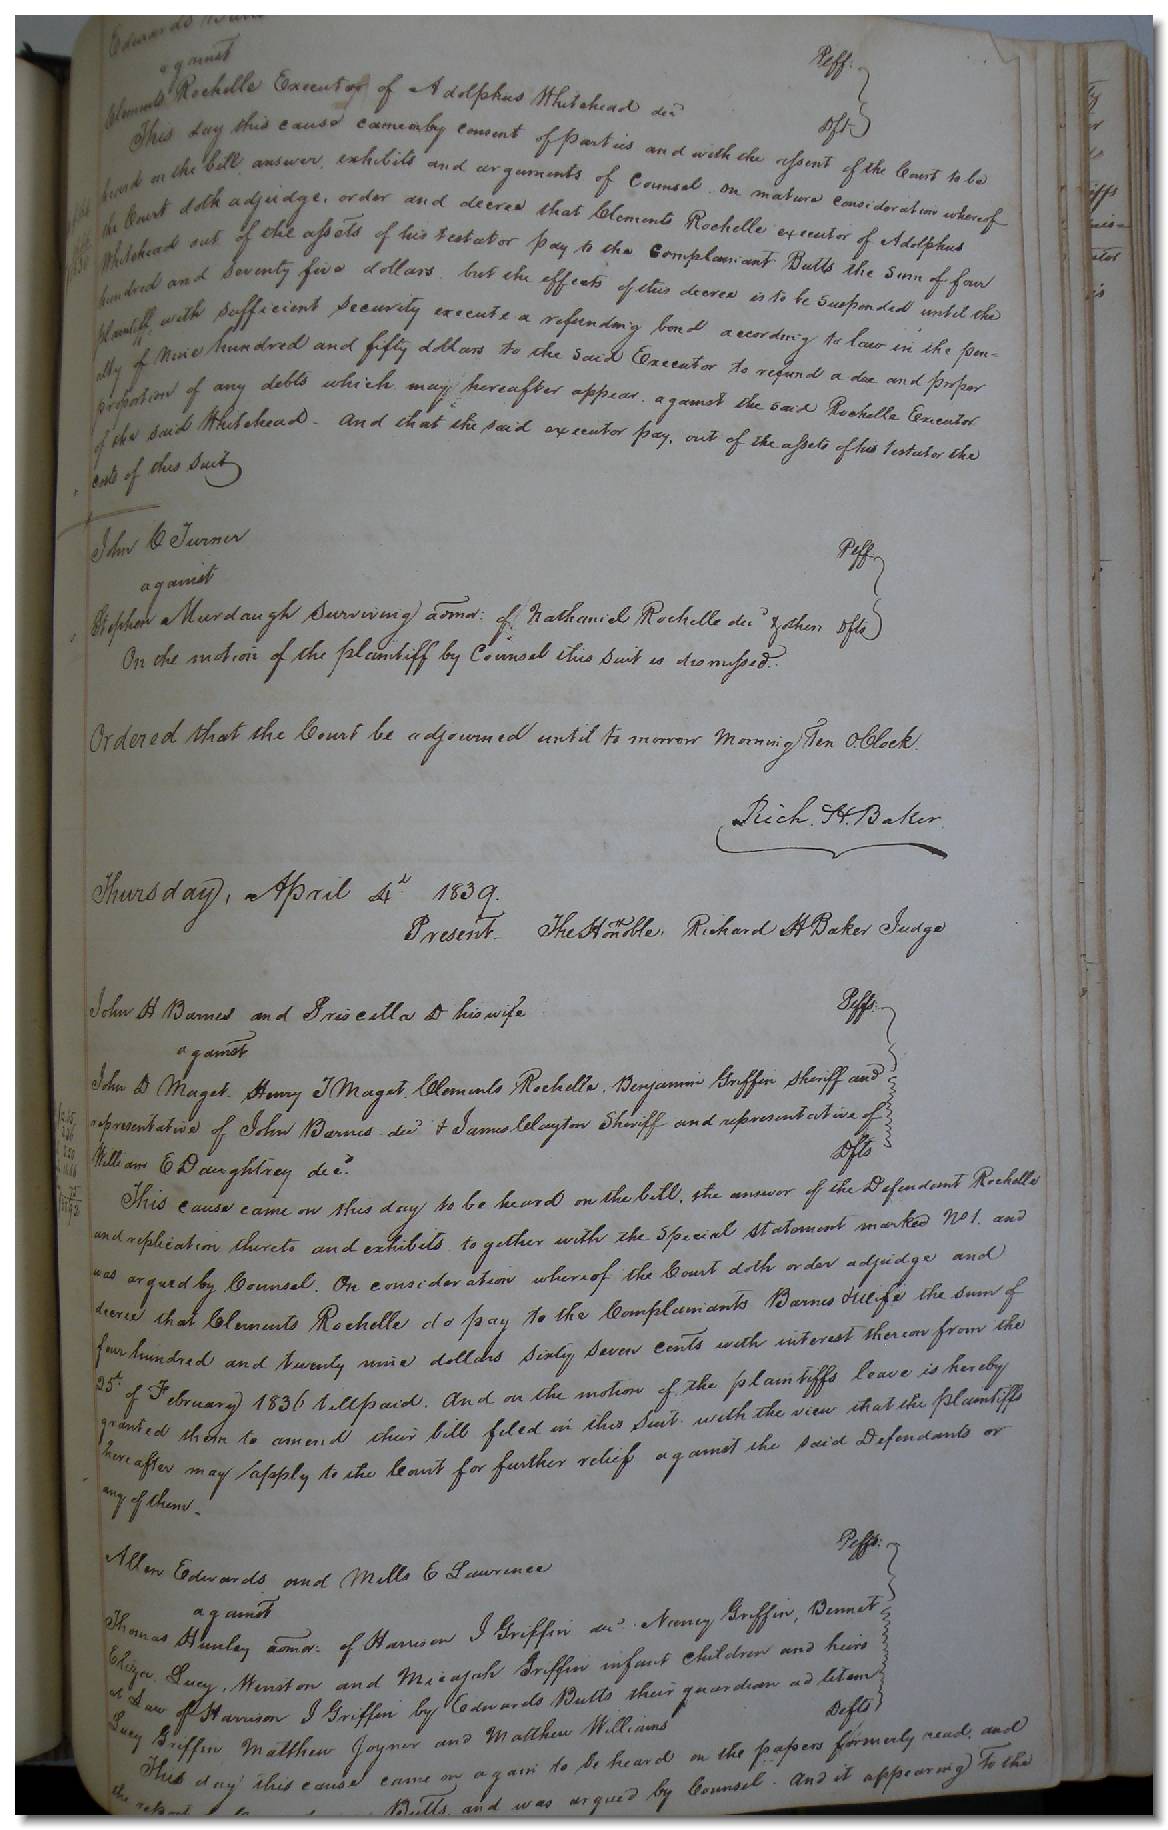 Edwards Butts
against
Clements Rochelle Executor of Adolphus Whitehead decd
Peff.
Dft
This day this cause came by consent of parties and with the assent of the Court to be
heard on the bill, answer, exhibits and arguments of Counsel. on mature consideration whereof
the Court doth adjudge, order and decree that Clements Rochelle executor of Adolphus
Whitehead out of the assets of his testator pay to the Complainant Butts the sum of four
hundred and seventy five dollars. but the effects of this decree is to be suspended until the
plaintiff, with sufficient security execute a refunding bond according to law in the pen-
alty of nine hundred and fifty dollars to the said Executor to refund a due and propor
proportion of any debts which may hereafter appear against the said Rochelle Executor
of the said Whitehead. And that the said executor pay, out of the assets of his testator the
costs of this suit
John C Turner
Peff.
against
Stephen Murdaugh surviving admr: of Nathaniel Rochelle decd & others Dfts
On the motion of the plaintiff by Counsel this suit is dismissed.
Ordered that the Court be adjourned until to morrow Morning Ten O.Clock.
Rich. H. Baker.
Thursday, April 4th 1839.
Present. The Honoble. Richard H Baker Judge
John H Barnes and Priscilla D his wife
Peffs.
against
John D Maget. Henry T Maget. Clements Rochelle, Benjamin Griffin Sheriff and
representative of John Barnes decd & James Clayton Sheriff and representative of
William E Daughtrey decd.
Dfts
This cause came on this day to be heard on the bill, the answer of the Defendant Rochelle
and replication thereto and exhibits together with the Special statement marked No 1. and
was argued by Counsel. On consideration whereof the Court doth order adjudge and
decree that Clements Rochelle do pay to the Complainants Barnes & Wife the sum of
four hundred and twenty nine dollars sixty seven cents with interest thereon from the
25th of February 1836 till paid. And on the motion of the plaintiffs leave is hereby
granted them to amend their bill filed in this suit with the view that the plaintiffs
hereafter may apply to the Court for further relief against the said Defendants or
any of them.
Allen Edwards and Mills E Lawrence
Peffs.
against
Thomas Hunley admr. of Harrison J Griffin decd. Nancy Griffin, Bennet
Eliza. Lucy, Winston and Micajah Griffin infant children and heirs
at Law of Harrison J Griffin by Edwards Butts their guardian ad litem
Lucy Griffin Matthew Joyner and Matthew Williams
Defts
This day this cause came on again to be heard on the papers formerly read, and
the report Butts, and was argued by Counsel. And it appearing to the